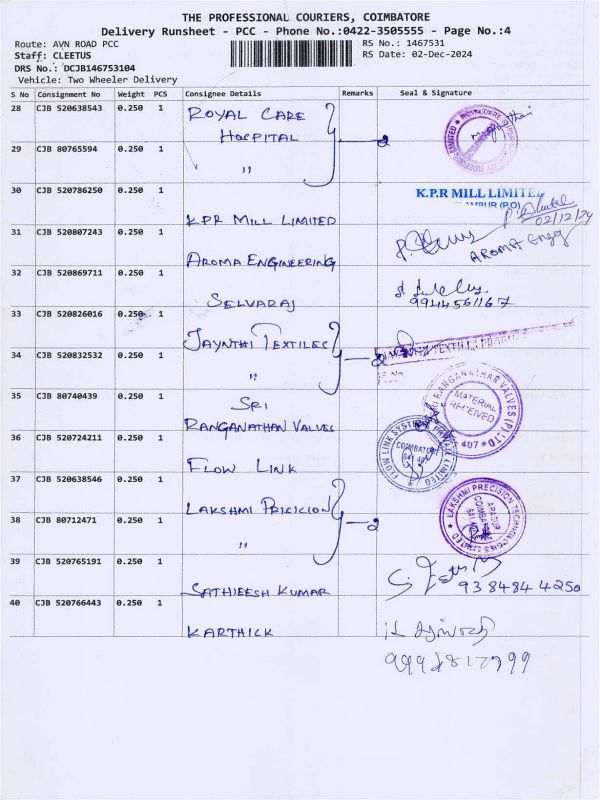 THE PROFESSIONAL COURIERS, COIMBATORE
Delivery Runsheet - PCC - Phone No.:0422-3505555 - Page No.:4
Route: AVN ROAD PCC RS No.: 1467531
Staff: CLEETUS RS Date: 02-Dec-2024
DRS No.: DCJB146753104
Vehicle: Two Wheeler Delivery
S No Consignment No Weight PCS Consignee Details Remarks Seal & Signature
28 CJB 520638543 0.250 1 ROYAL CARE HOSPITAL
29 CJB 80765594 0.250 1 " 2
30 CJB 520786250 0.250 1 KPR MILL LIMITED
K.P.R MILL LIMITED
02/12/24
31 CJB 520807243 0.250 1 AROMA ENGINEERING
AROMA Engg
32 CJB 520869711 0.250 1 SELVARAJ
9944561167
33 CJB 520826016 0.250 1 JAYNTHI TEXTILES
34 CJB 520832532 0.250 1 " 2
35 CJB 80740439 0.250 1 SRI RANGANATHAN VALVES
RANGANATHAR VALVES (P) LTD
MATERIAL RECEIVED
407
36 CJB 520724211 0.250 1 FLOW LINK
FLOW LINK SYSTEMS PRIVATE LIMITED
COIMBATORE
641 407
37 CJB 520638546 0.250 1 LAKSHMI PRICICION
38 CJB 80712471 0.250 1 " 2
LAKSHMI PRECISION TECHNOLOGIES LIMITED
ARASUR
COIMBATORE
39 CJB 520765191 0.250 1 SATHIEESH KUMAR
93 8484 4250
40 CJB 520766443 0.250 1 KARTHICK